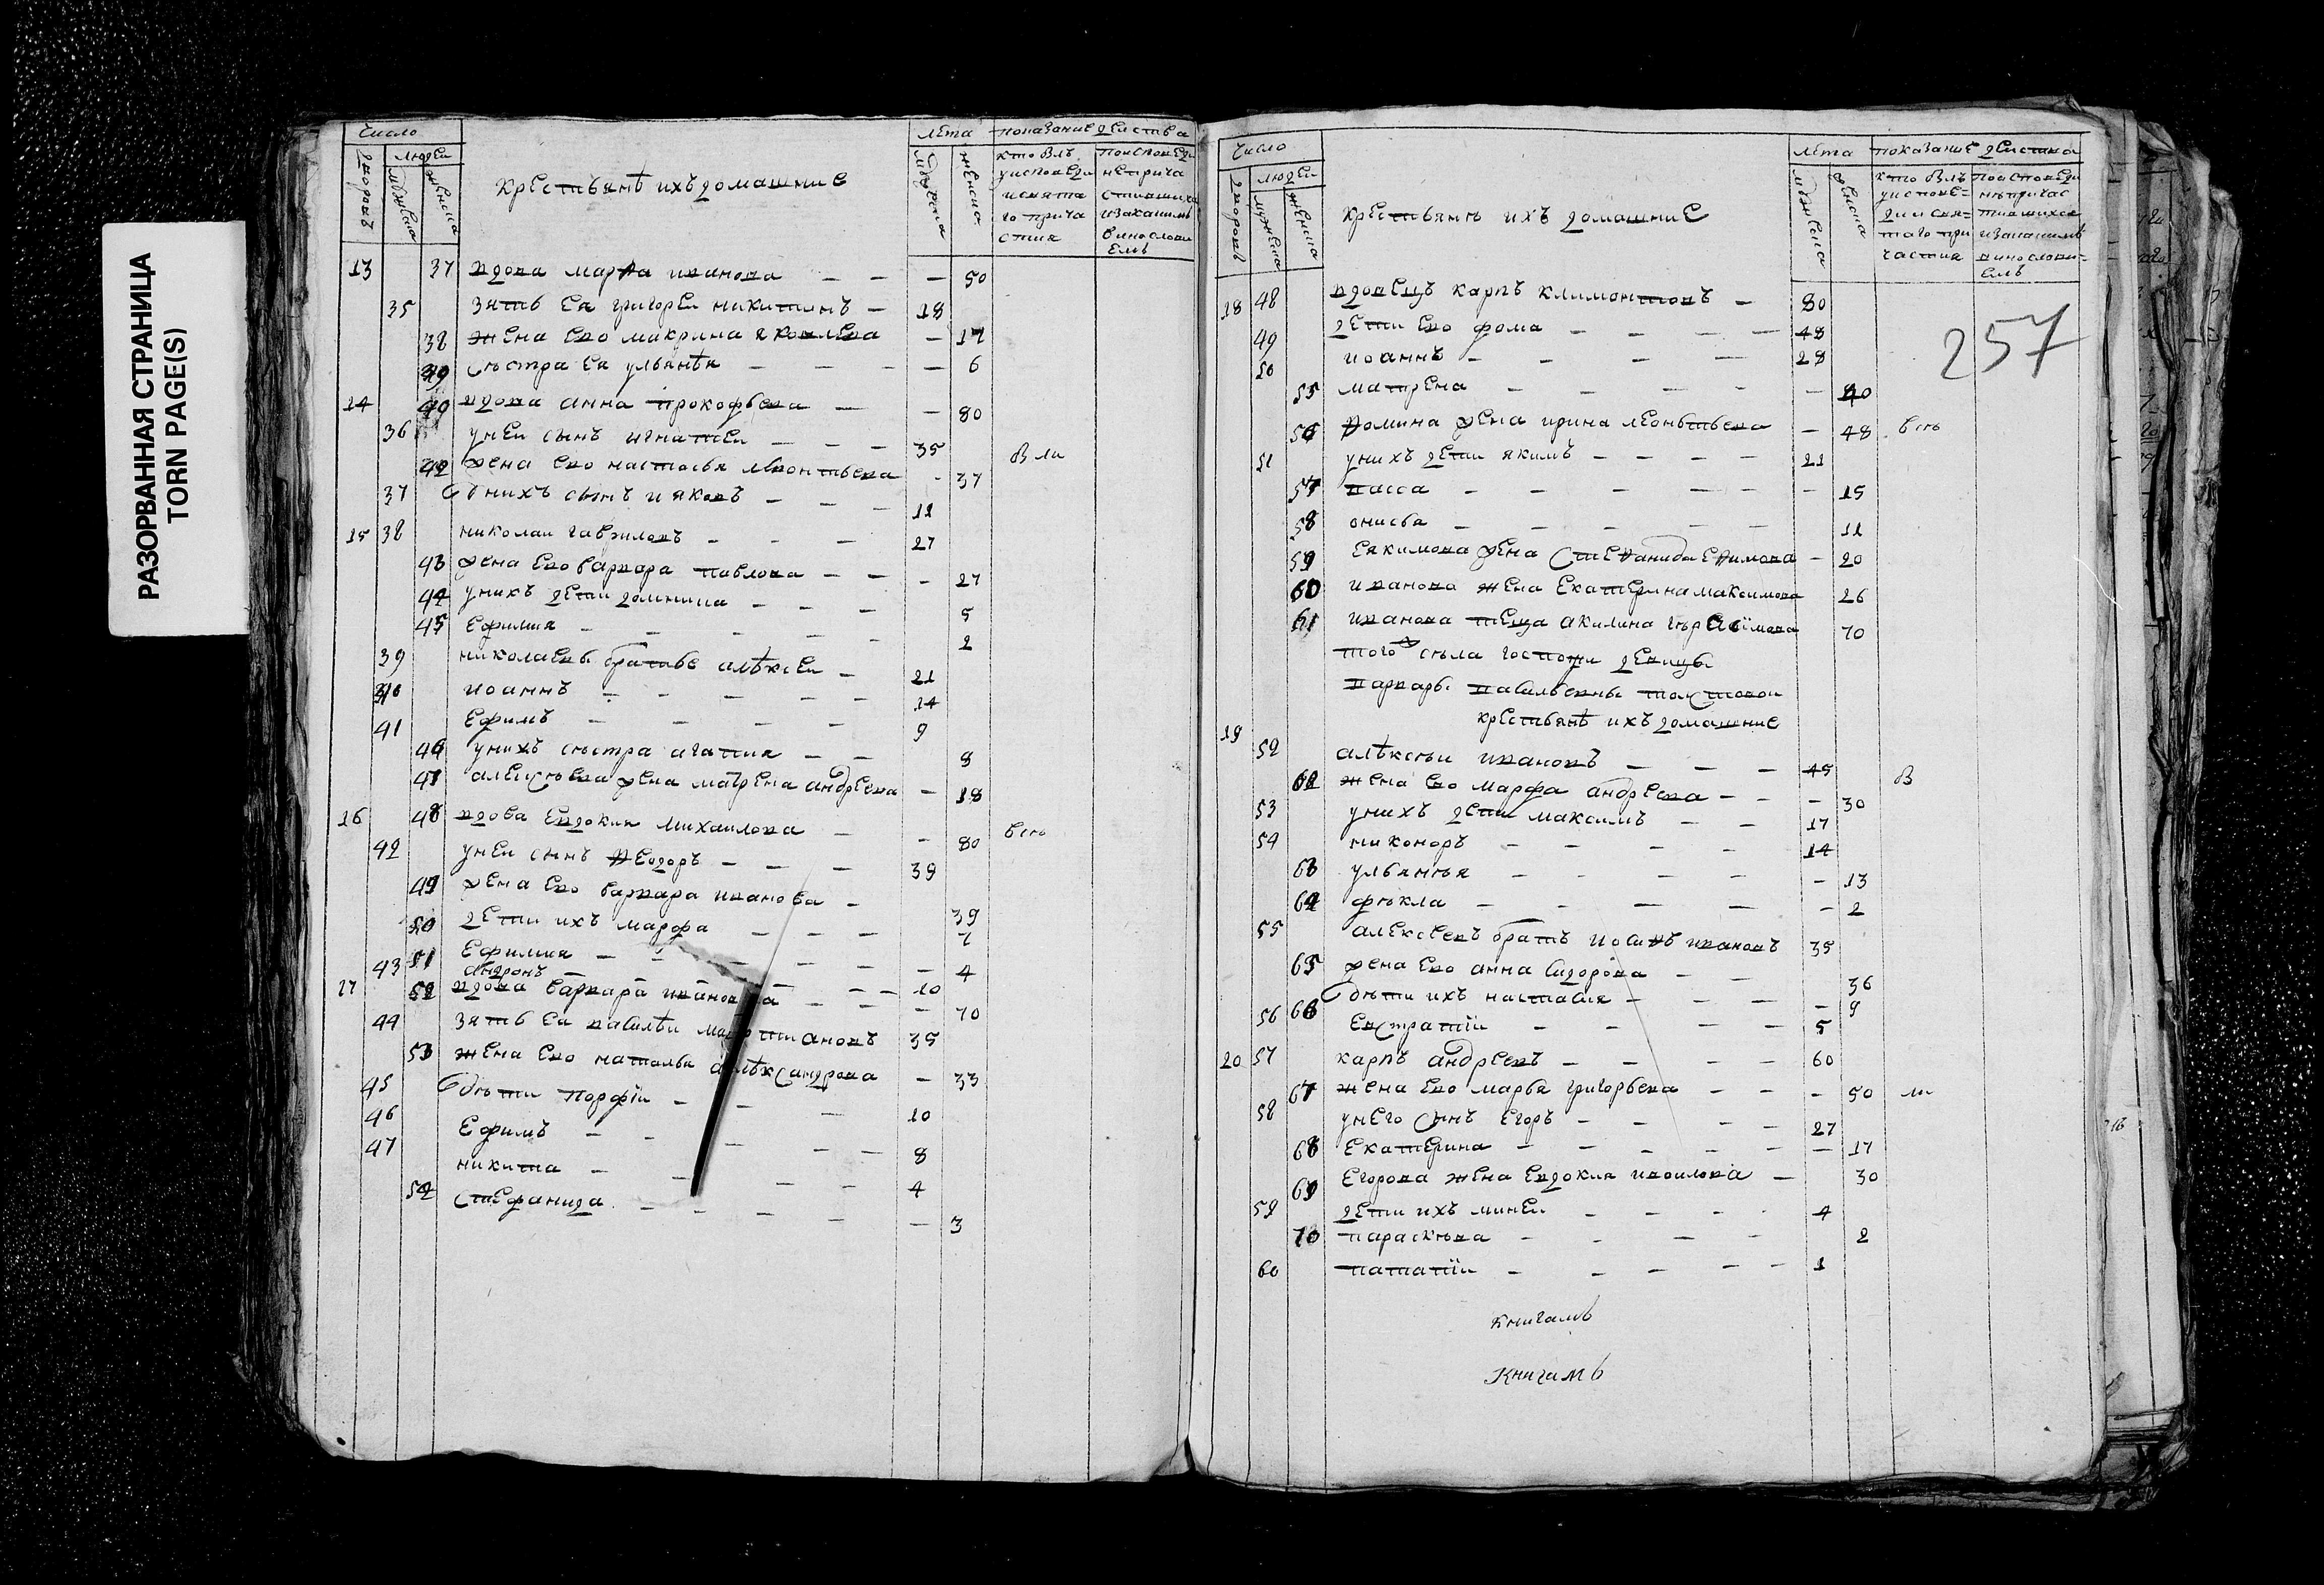 РАЗОРВАННАЯ СТРАНИЦА
TORN PAGE(S)
Число лѣта показание действа
дворовъ людей мужеска женска
крестьянѣ ихъ домашние
мужеска женска
кто былъ у исповеди и свята го прича стия
по исповеди непричастившихся и за какимъ винословиемъ
13 37 вдова марѳа иванова — — — 50
35 зять ея григореи никитинъ — 18
38 жена ево макрина яковлева — 17
39 сѣстра ея ульянѣя — — — — 6
14 40 вдова анна прокофьева — — 80
36 у неи сынъ игнатеи — — — 35
42 жена ево настасья леонтьева - 37
37 от нихъ сынъ ияковъ — — — 11
15 38 николаи гавриловъ — — — 27
43 жена ево варвара павлова — — - 27
44 у нихъ дети домника — — — 5
45 Ефимия — — — — — 2
39 николаевы братье алѣксеи — 21
310 иоаннъ — — — — — 14
41 Ефимъ — — — — 9
46 у нихъ сѣстра агапия — — 8
47 алексѣева жена матрена андреева — 18
16 48 вдова Евдокия михаилова — - 80
42 у неи сынъ ѳеодоръ — — — 39
49 жена ево варвара иванова — 39
50 дети ихъ марфа — — — 7
51 Ефимия — — — — — 4
43 андронъ — — — — — 10
17 52 вдова варвара иванова — — — 70
44 зять еи василѣи мартиановъ 35
53 жена ево наталья алѣксандрова — 33
45 дѣти порфіи — — — 10
46 Ефимъ — — — — — 8
47 никита — — — — 4
54 стефанида — — — — — 3
Число лѣта показание действа
дворовъ людей мужеска женска
крестьянѣ ихъ домашние
мужеска женска
кто былъ у исповеди и святаго причастия
по исповеди нѣпричастившихся и за какимъ винословиемъ
257
18 48 вдовецъ карпъ климонтовъ — 80
49 дети ево фома — — — — 48
50 иоаннъ — — — — 28
55 матрена — — — — — 40
56 ѳомина жена ирина леоньтьева — 48
51 у нихъ дети якимъ — — — — 21
57 васса — — — — — — 15
58 онисья — — — — — 11
59 Еякимова жена стеѳанида еѳимова — 20
60 иванова жена Екатерина максимова 26
61 иванова теща акилина гѣрасімова 70
того ж сѣла госпожи девицы
варвары васильевны толстовой
крестьянѣ ихъ домашние
19 52 алѣксѣи ивановъ — — — 45
62 жена ево марфа андреева — — — 30
53 у нихъ дети максимъ — — 17
54 никоноръ — — — — 14
63 ульянѣя — — — — — 13
64 фѣкла — — — — — 2
55 алексеевъ братъ иосиѳъ ивановъ 35
65 жена ево анна сидорова — — 36
66 дѣти ихъ настасия — — — — 9
56 Евстратіи — — — — 5
20 57 карпъ андреевъ — — — 60
67 жена ево марья григорьева — — - 50
58 у него сынъ Егоръ — — — — 27
68 Екатерина — — — — — — 17
69 Егорова жена Евдокия иваилова — 30
59 дети ихъ минеи — — — - 4
70 параскѣва — — — — 2
60 патапіи — — — — — 1
книгамъ
Книгамъ